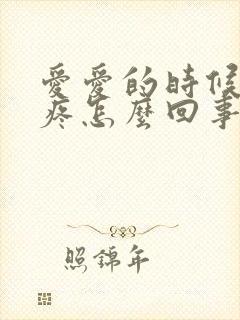 愛愛的時候
疼怎麼回事
照錦年